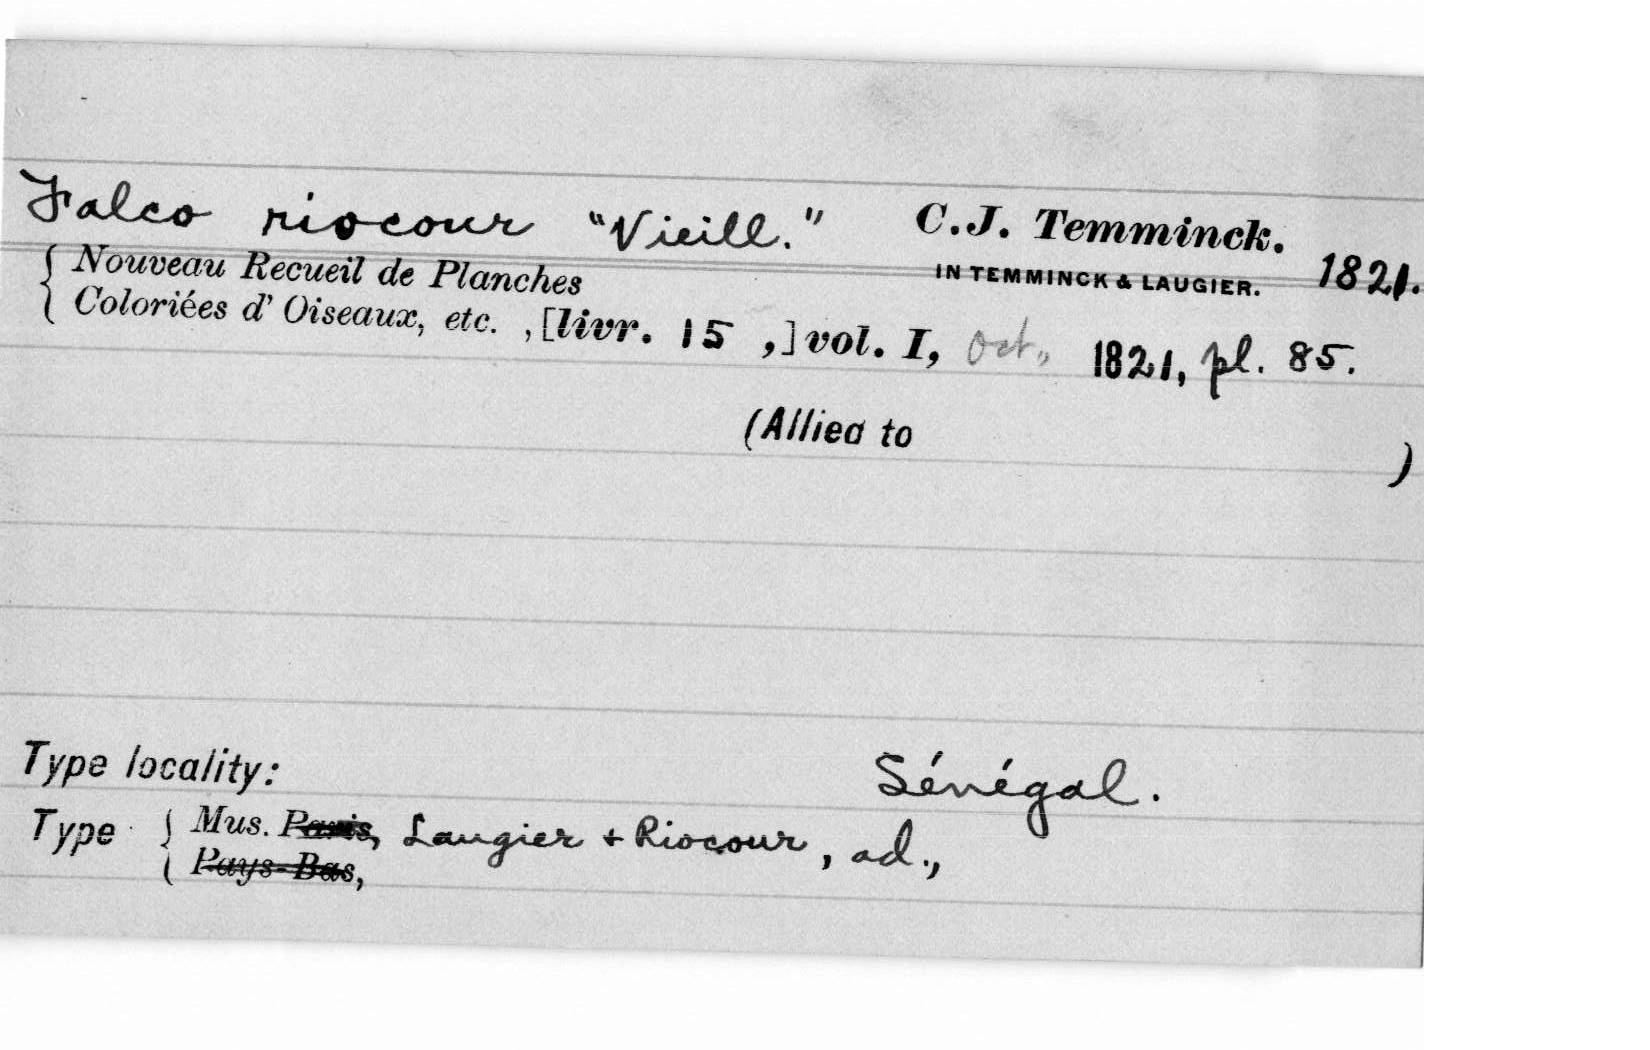 Falco riocour "Vieill." C.J. Temminck.
IN TEMMINCK & LAUGIER. 1821.
{ Nouveau Recueil de Planches
Coloriées d' Oiseaux, etc. , [livr. 15 ,] vol. I, Oct., 1821, pl. 85.
(Allied to )
Type locality: Sénégal.
Type { Mus. Paris, Laugier + Riocour, ad.,
Pays-Bas,